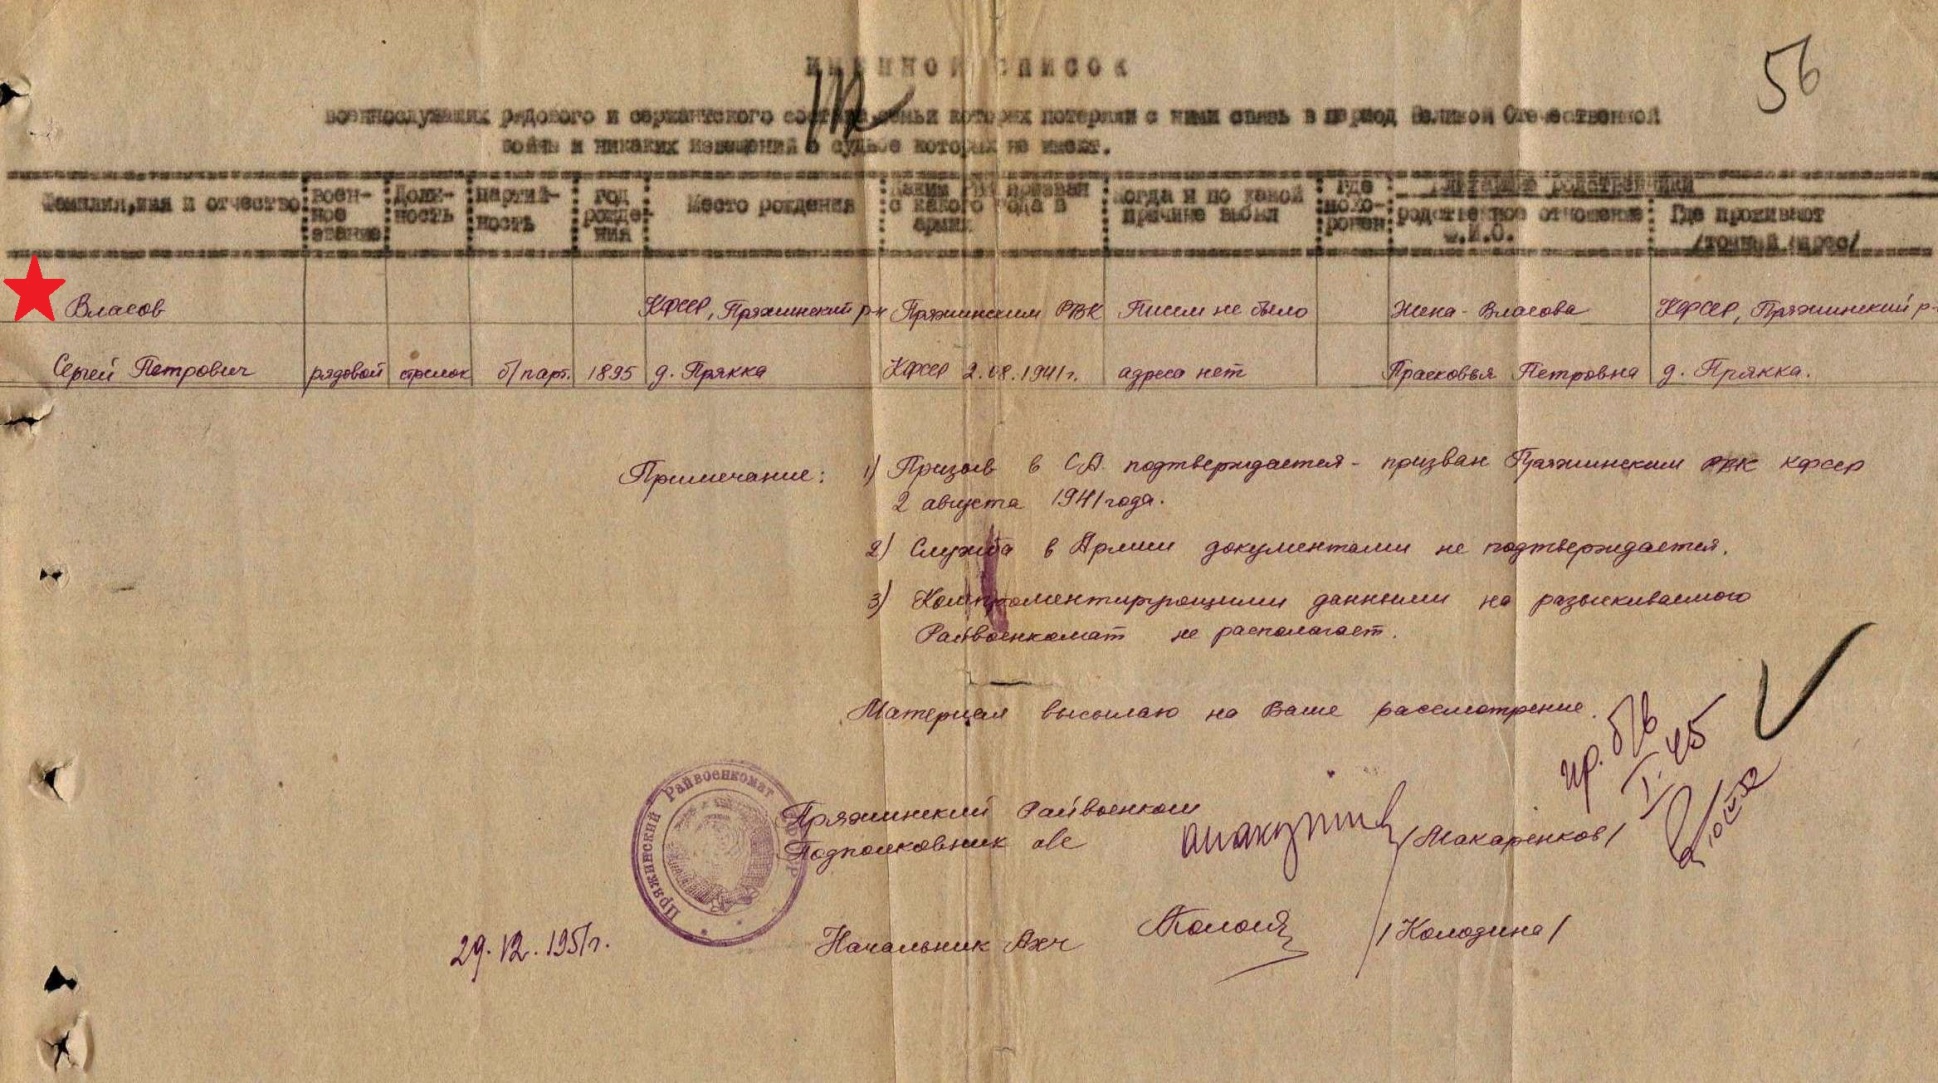 ИМЕННОЙ СПИСОК
56
военнослужащих рядового и сержантского состава семьи которых потеряли с ними связь в период Великой Отечественной
войны и никаких извещений о судьбе которых не имеют.
Фамилия,имя и отчество воен-ное звание Долж-ность партий-ность год рожде-ния Место рождения Каким РВК призван с какого года в армии когда и по какой причине выбыл где похо-ронен родственное отношение Ф.И.О. Где проживают /точный адрес/
Власов КФССР, Пряжинский р-н Пряжинским РВК Писем не было Жена - Власова КФССР, Пряжинский р-
Сергей Петрович рядовой стрелок б/парт. 1895 д. Прякка КФССР 2.08.1941г. адреса нет Прасковья Петровна д. Прякка.
Примечание: 1) Призыв в С.А. подтверждается - призван Пряжинским РВК КФССР
2 августа 1941 года.
2) Служба в Армии документами не подтверждается.
3) Компроментирующими данными на разыскиваемого
Райвоенкомат не располагает.
Материал высылаю на Ваше рассмотрение.
пр. б/в
I.45
Пряжинский Райвоенкомат
Пряжинский Райвоенком
Подполковник а/с /Макаренков/
29.12.1951г. Начальник АХЧ /Колодина/